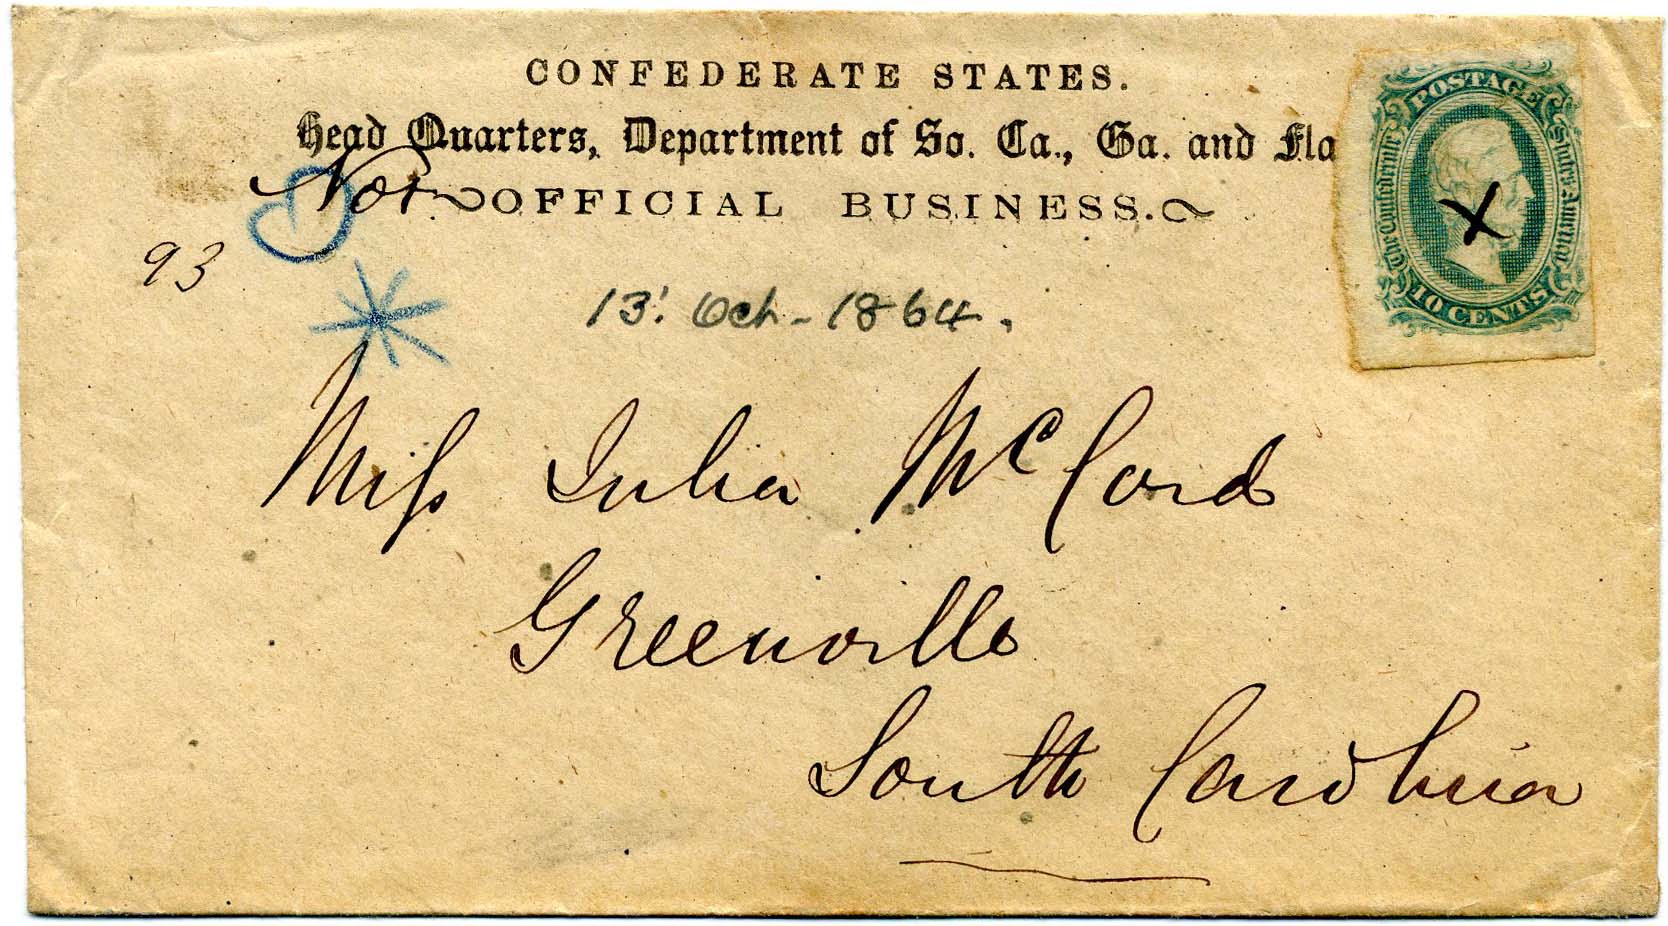 CONFEDERATE STATES.
Head Quarters, Department of So. Ca., Ga. and Fla
Not OFFICIAL BUSINESS.
93
13! Oct - 1864.
POSTAGE
The Confederate States of America
10 CENTS
X
Miss Julia McCord
Greenville
South Carolina